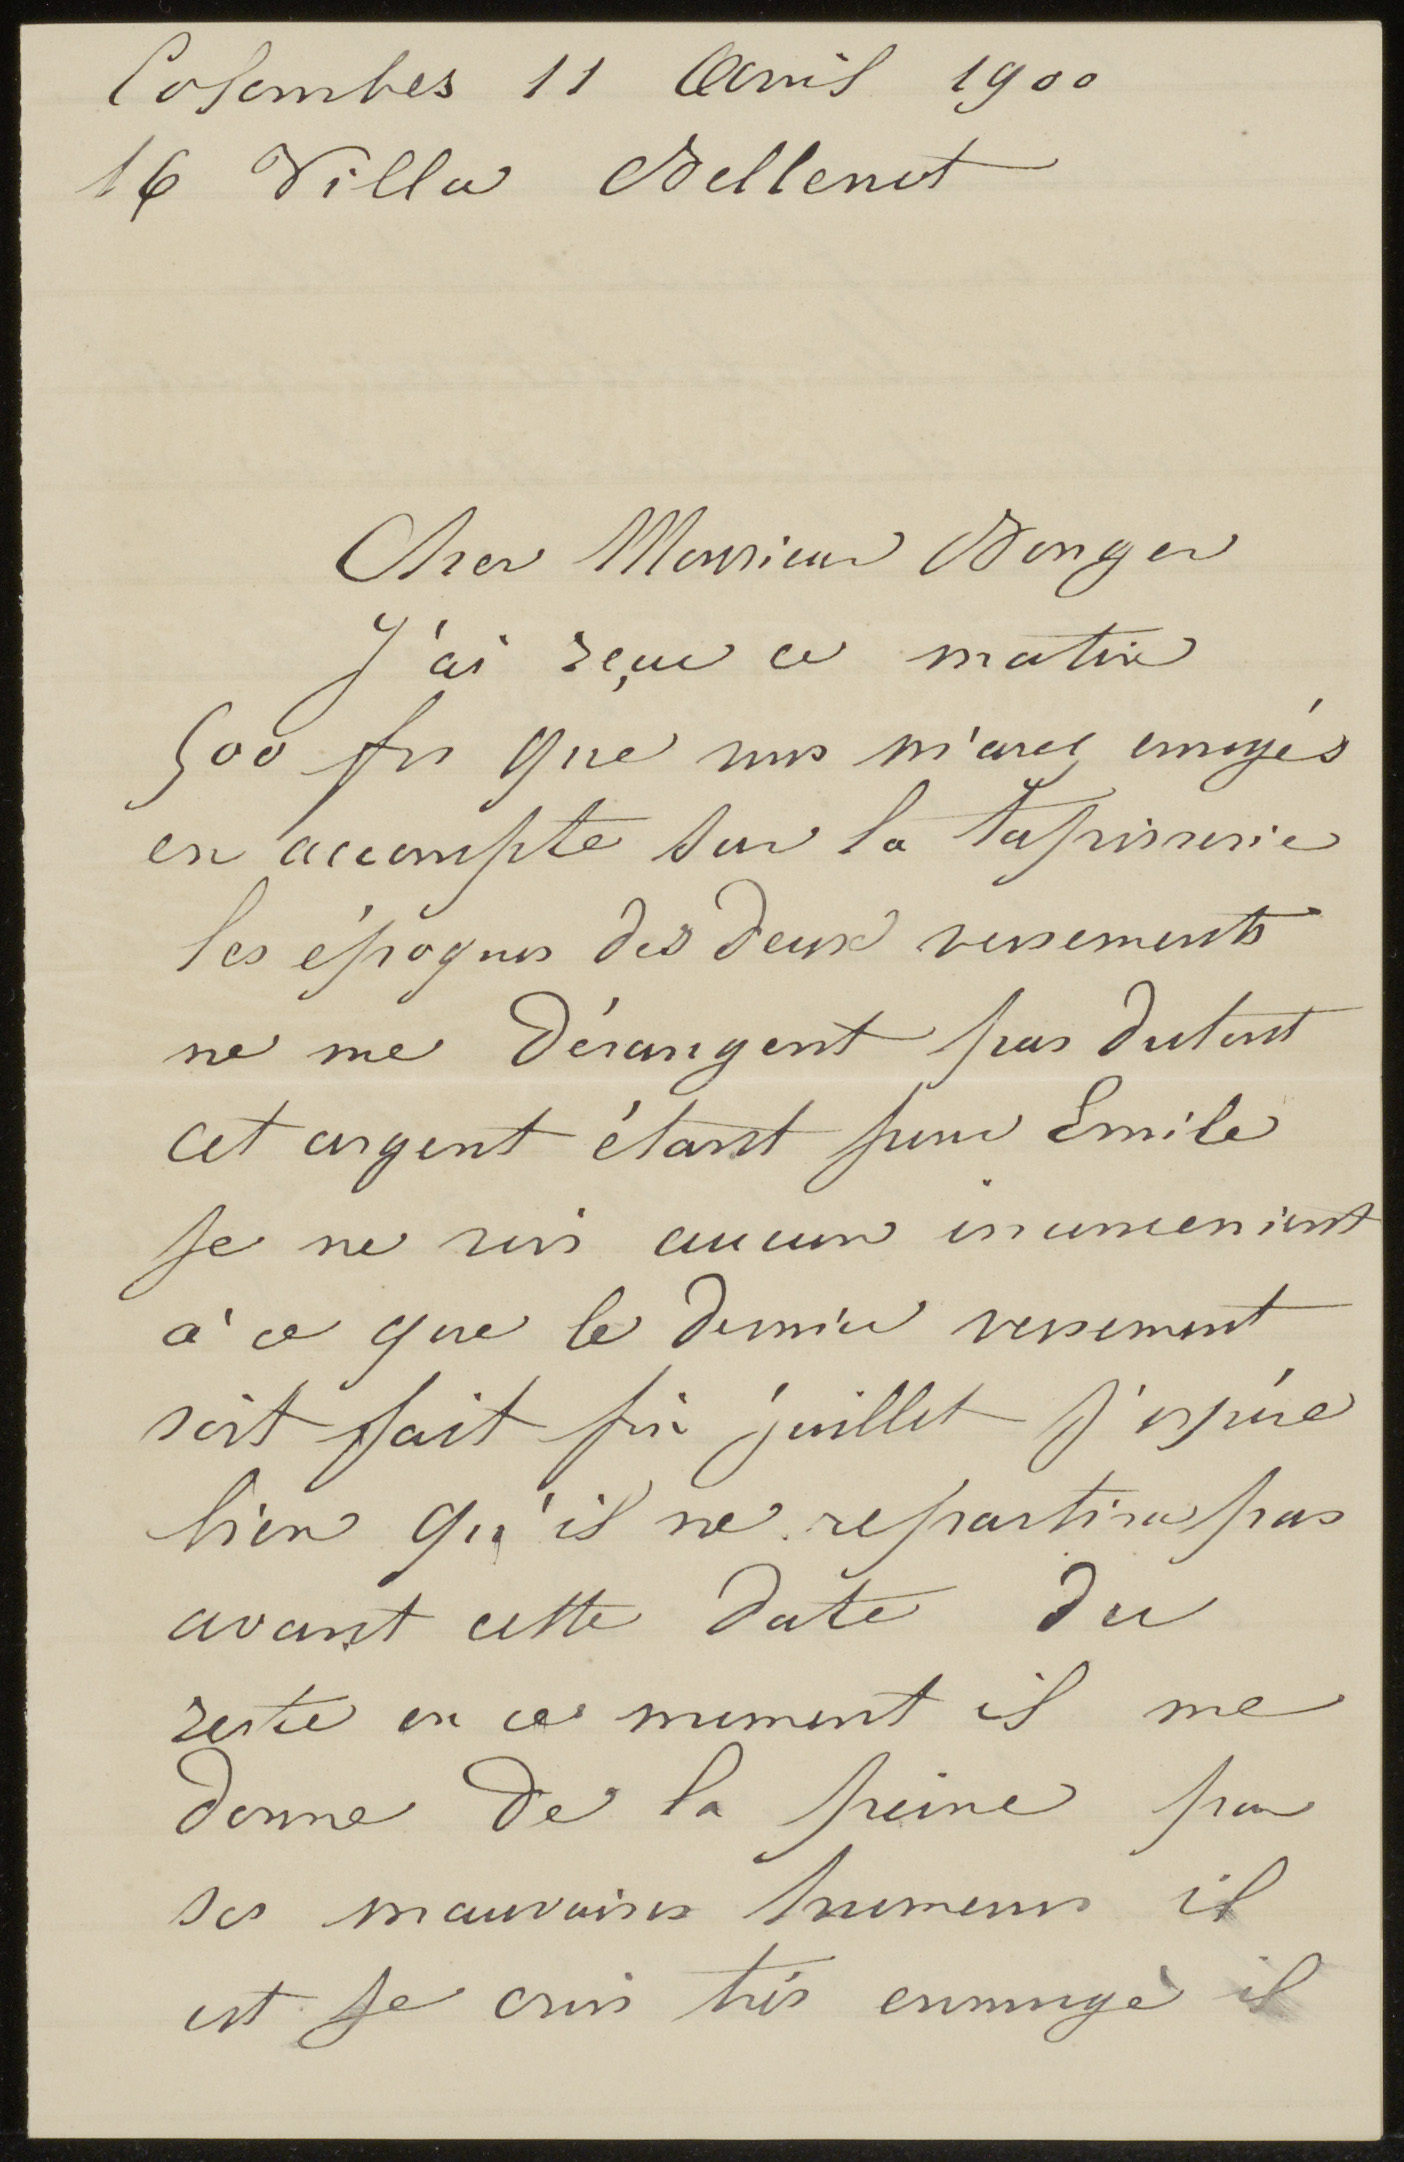 Colombes 11 Avril 1900
16 Villa Bellenot
Cher Monsieur Bonger
J'ai reçue ce matin
500 frs que vous m'avez envoyés
en accompte sur la tapisserie
les époques des deux versements
ne me dérangent pas dutout
cet argent étant pour Emile
je ne vois aucun inconvenient
à ce que le dernier versement
soit fait fin juillet j'espère
bien qu'il ne repartira pas
avant cette date du
reste en ce moment il me
donne de la peine par
ses mauvaises humeurs il
est je crois très ennuyé il